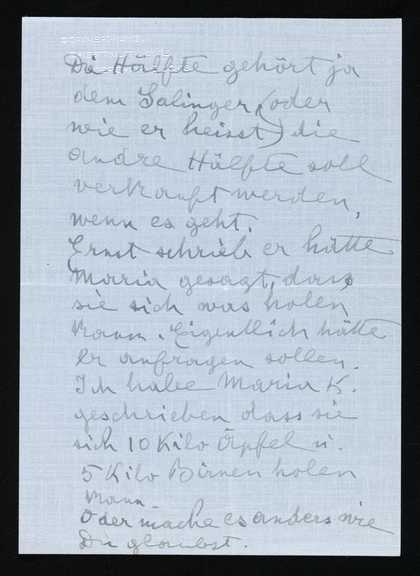 Die Hälfte gehört ja
dem Salinger (oder
wie er heisst) die
andre Hälfte soll
verkauft werden,
wenn es geht.
Ernst schrieb er hätte
Maria gesagt, dass
sie sich was holen
kann. Eigentlich hätte
er anfragen sollen.
Ich habe Maria K.
geschrieben dass sie
sich 10 Kilo Äpfel u.
5 Kilo Birnen holen
kann.
Oder mache es anders wie
Du glaubst.